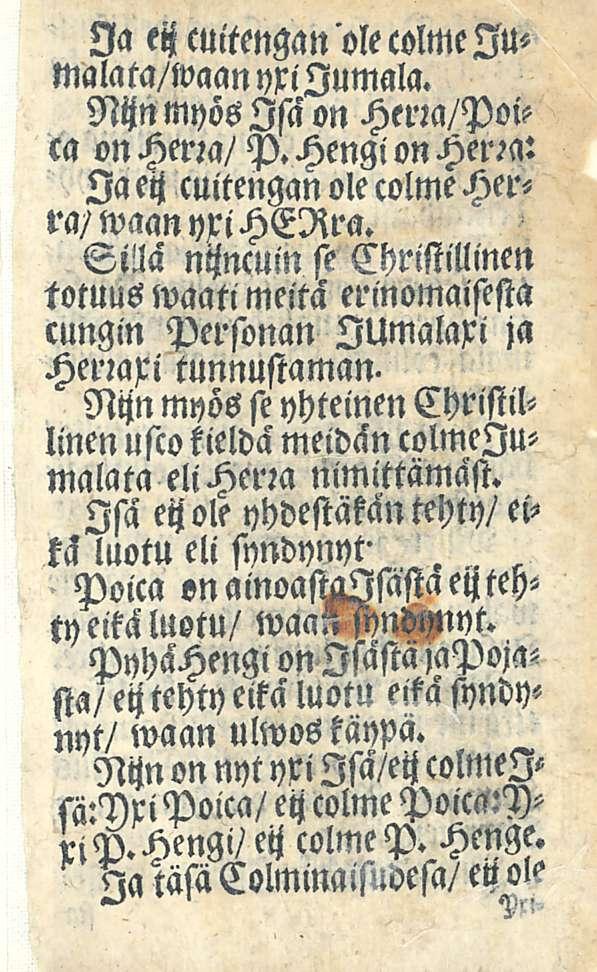 Ja eij cuitengan ole colme Ju-
malata/waan yxi Jumala.
Nijn myös Isä on Herra/Poi-
ca on Herra/ P. Hengi on Herra:
Ja eij cuitengan ole colme Her-
ra/ waan yxi HERra.
Sillä nijncuin se Christillinen
totuus waati meitä erinomaisesta
cungin Personan JUmalaxi ja
Herraxi tunnustaman.
Nijn myös se yhteinen Christil-
linen usco kieldä meidän colme Ju-
malata eli Herra nimittämäst.
Isä eij ole yhdestäkän tehty/ ei-
kä luotu eli syndynyt.
Poica on ainoasta Isästä eij teh-
ty eikä luotu/ waan syndynyt.
Pyhä Hengi on Isästä ja Poja-
sta/ eij tehty eikä luotu eikä syndy-
nyt/ waan ulwos käypä.
Nijn on nyt yxi Isä/eij colme I-
sä: Yxi Poica/ eij colme Poica: Y-
xi P. Hengi/ eij colme P. Henge.
Ja täsä Colminaisudesa/ eij ole
Yxi-